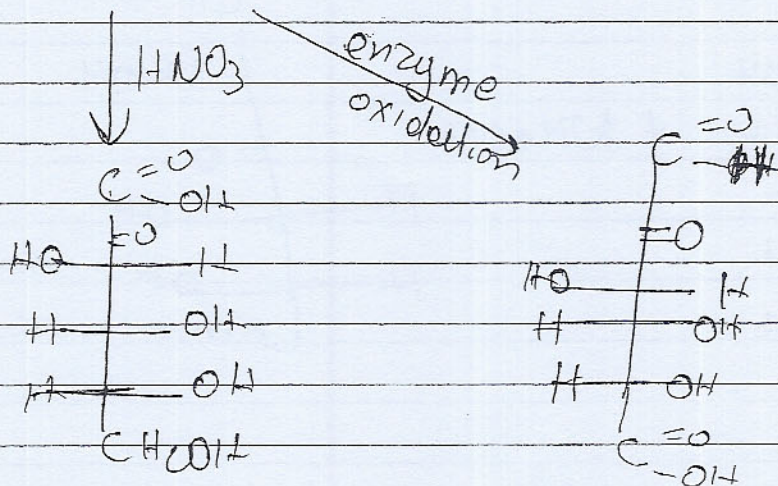 HNO3
enzyme
oxidation
C =O
-OH
=O
HO H
H OH
H OH
CH2OH
C =O
=O
HO H
H OH
H OH
C =O
-OH